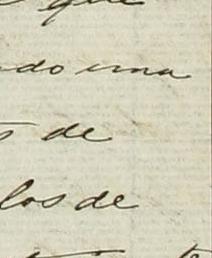 que
do una
de
los de